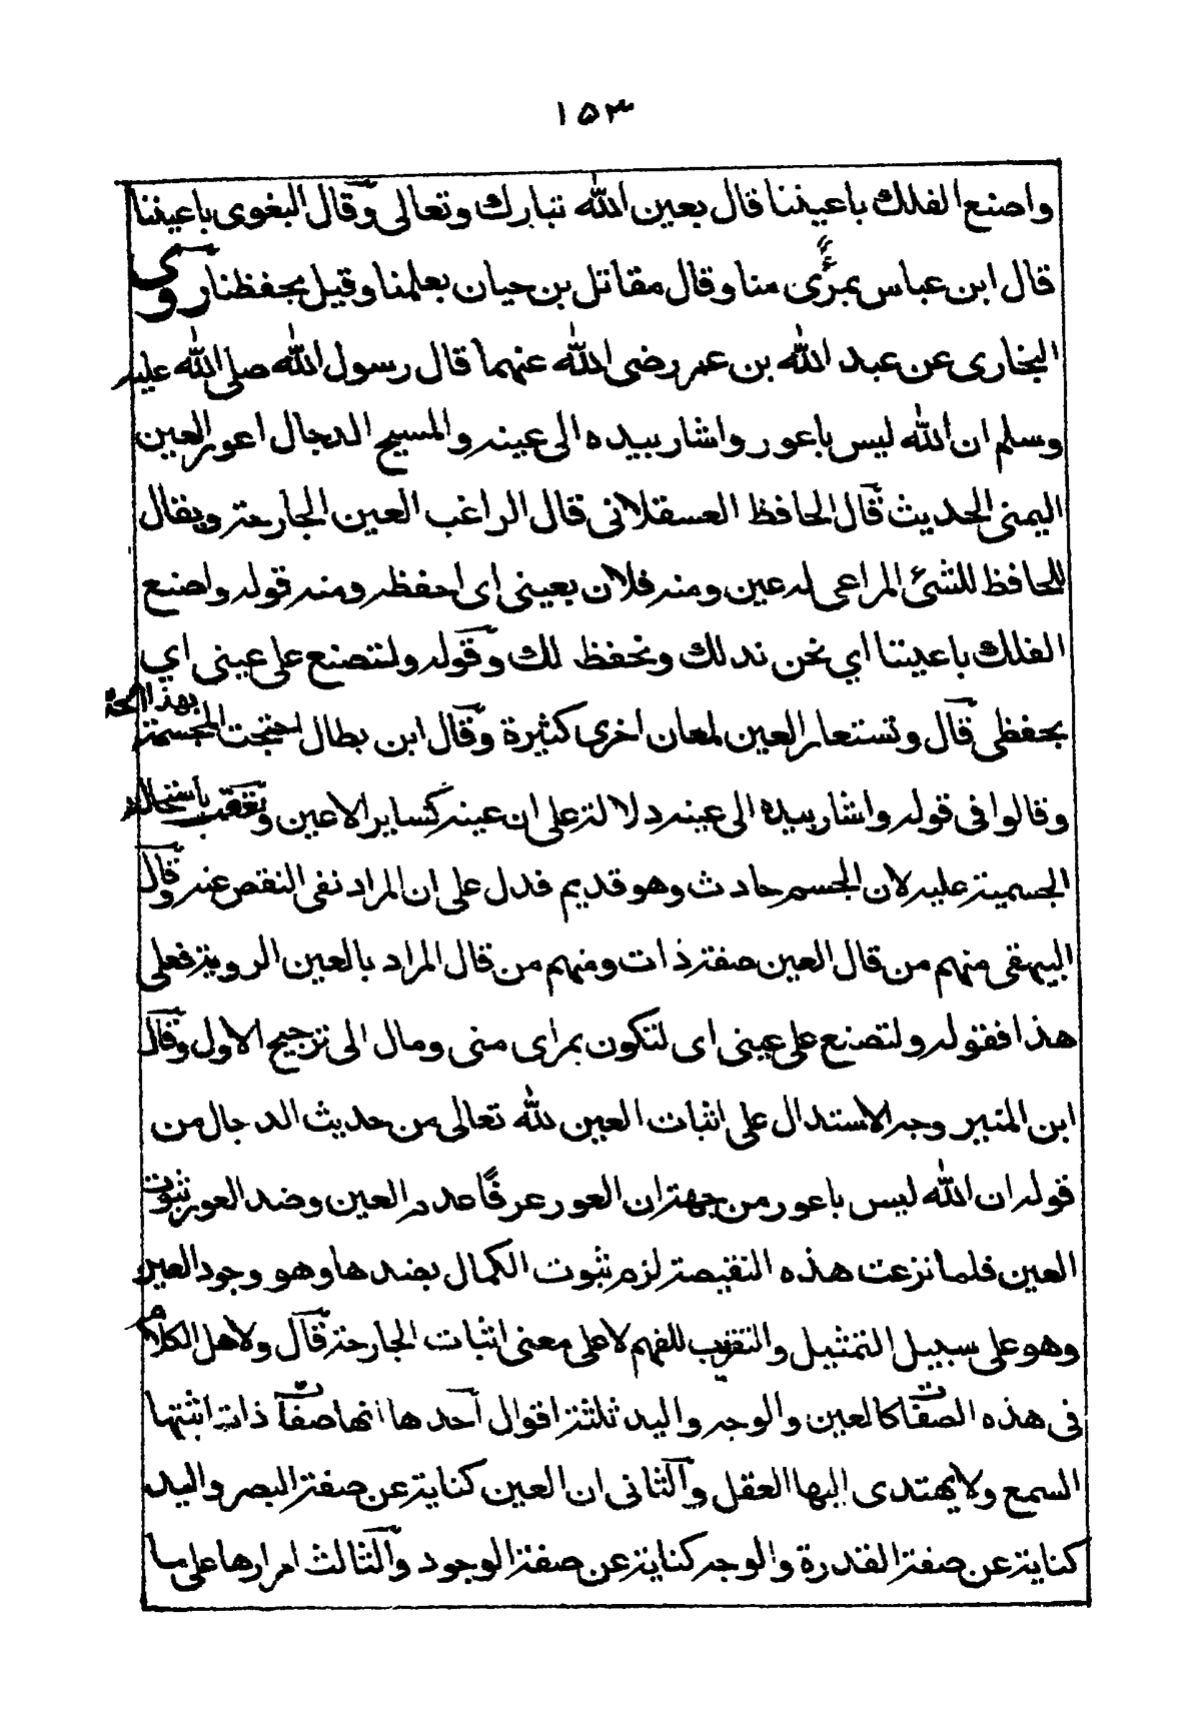 ١٥٣
واصنع الفلك باعيننا قال بعين الله تبارك وتعالى وقال البغوى باعيننا
قال ابن عباس بمرأى منا وقال مقاتل بن حيان بعلمنا وقيل بحفظنا روى
البخارى عن عبد الله بن عمر رضى الله عنهما قال رسول الله صلى الله عليه
وسلم ان الله ليس باعور واشار بيده الى عينه والمسيح الدجال اعور العين
اليمنى الحديث قال الحافظ العسقلانى قال الراغب العين الجارحة ويقال
للحافظ للشئ المراعى له عين ومنه فلان بعينى اى احفظه ومنه قوله واصنع
الفلك باعيننا اي نحن ندلك ونحفظ لك وقوله ولتصنع على عينى اي
بحفظى قال وتستعار العين لمعان اخرى كثيرة وقال ابن بطال احتجت المجسمة بهذا الحد
وقالوا فى قوله واشار بيده الى عينه دلالة على ان عينه كساير الاعين وتعقب باستحالة
الجسمية عليه لان الجسم حادث وهو قديم فدل على ان المراد نفى النقص عنه وقال
البيهقى منهم من قال العين صفة ذات ومنهم من قال المراد بالعين الروية فعلى
هذا فقوله ولتصنع على عينى اى لتكون بمراى منى ومال الى ترجيح الاول وقال
ابن المنير وجه الاستدال على اثبات العين لله تعالى من حديث الدجال من
قوله ان الله ليس باعور من جهة ان العور عرفًا عدم العين وضد العور ثبوت
العين فلما نزعت هذه النقيصة لزم ثبوت الكمال بضدها وهو وجود العين
وهو على سبيل التمثيل والتقريب للفهم لا على معنى اثبات الجارحة قال ولاهل الكلام
فى هذه الصفات كالعين والوجه واليد ثلثة اقوال احدها انها صفات ذات اثبتها
السمع ولا يهتدى اليها العقل والثانى ان العين كناية عن صفة البصر واليد
كناية عن صفة القدرة والوجه كناية عن صفة الوجود والثالث امرارها على ما